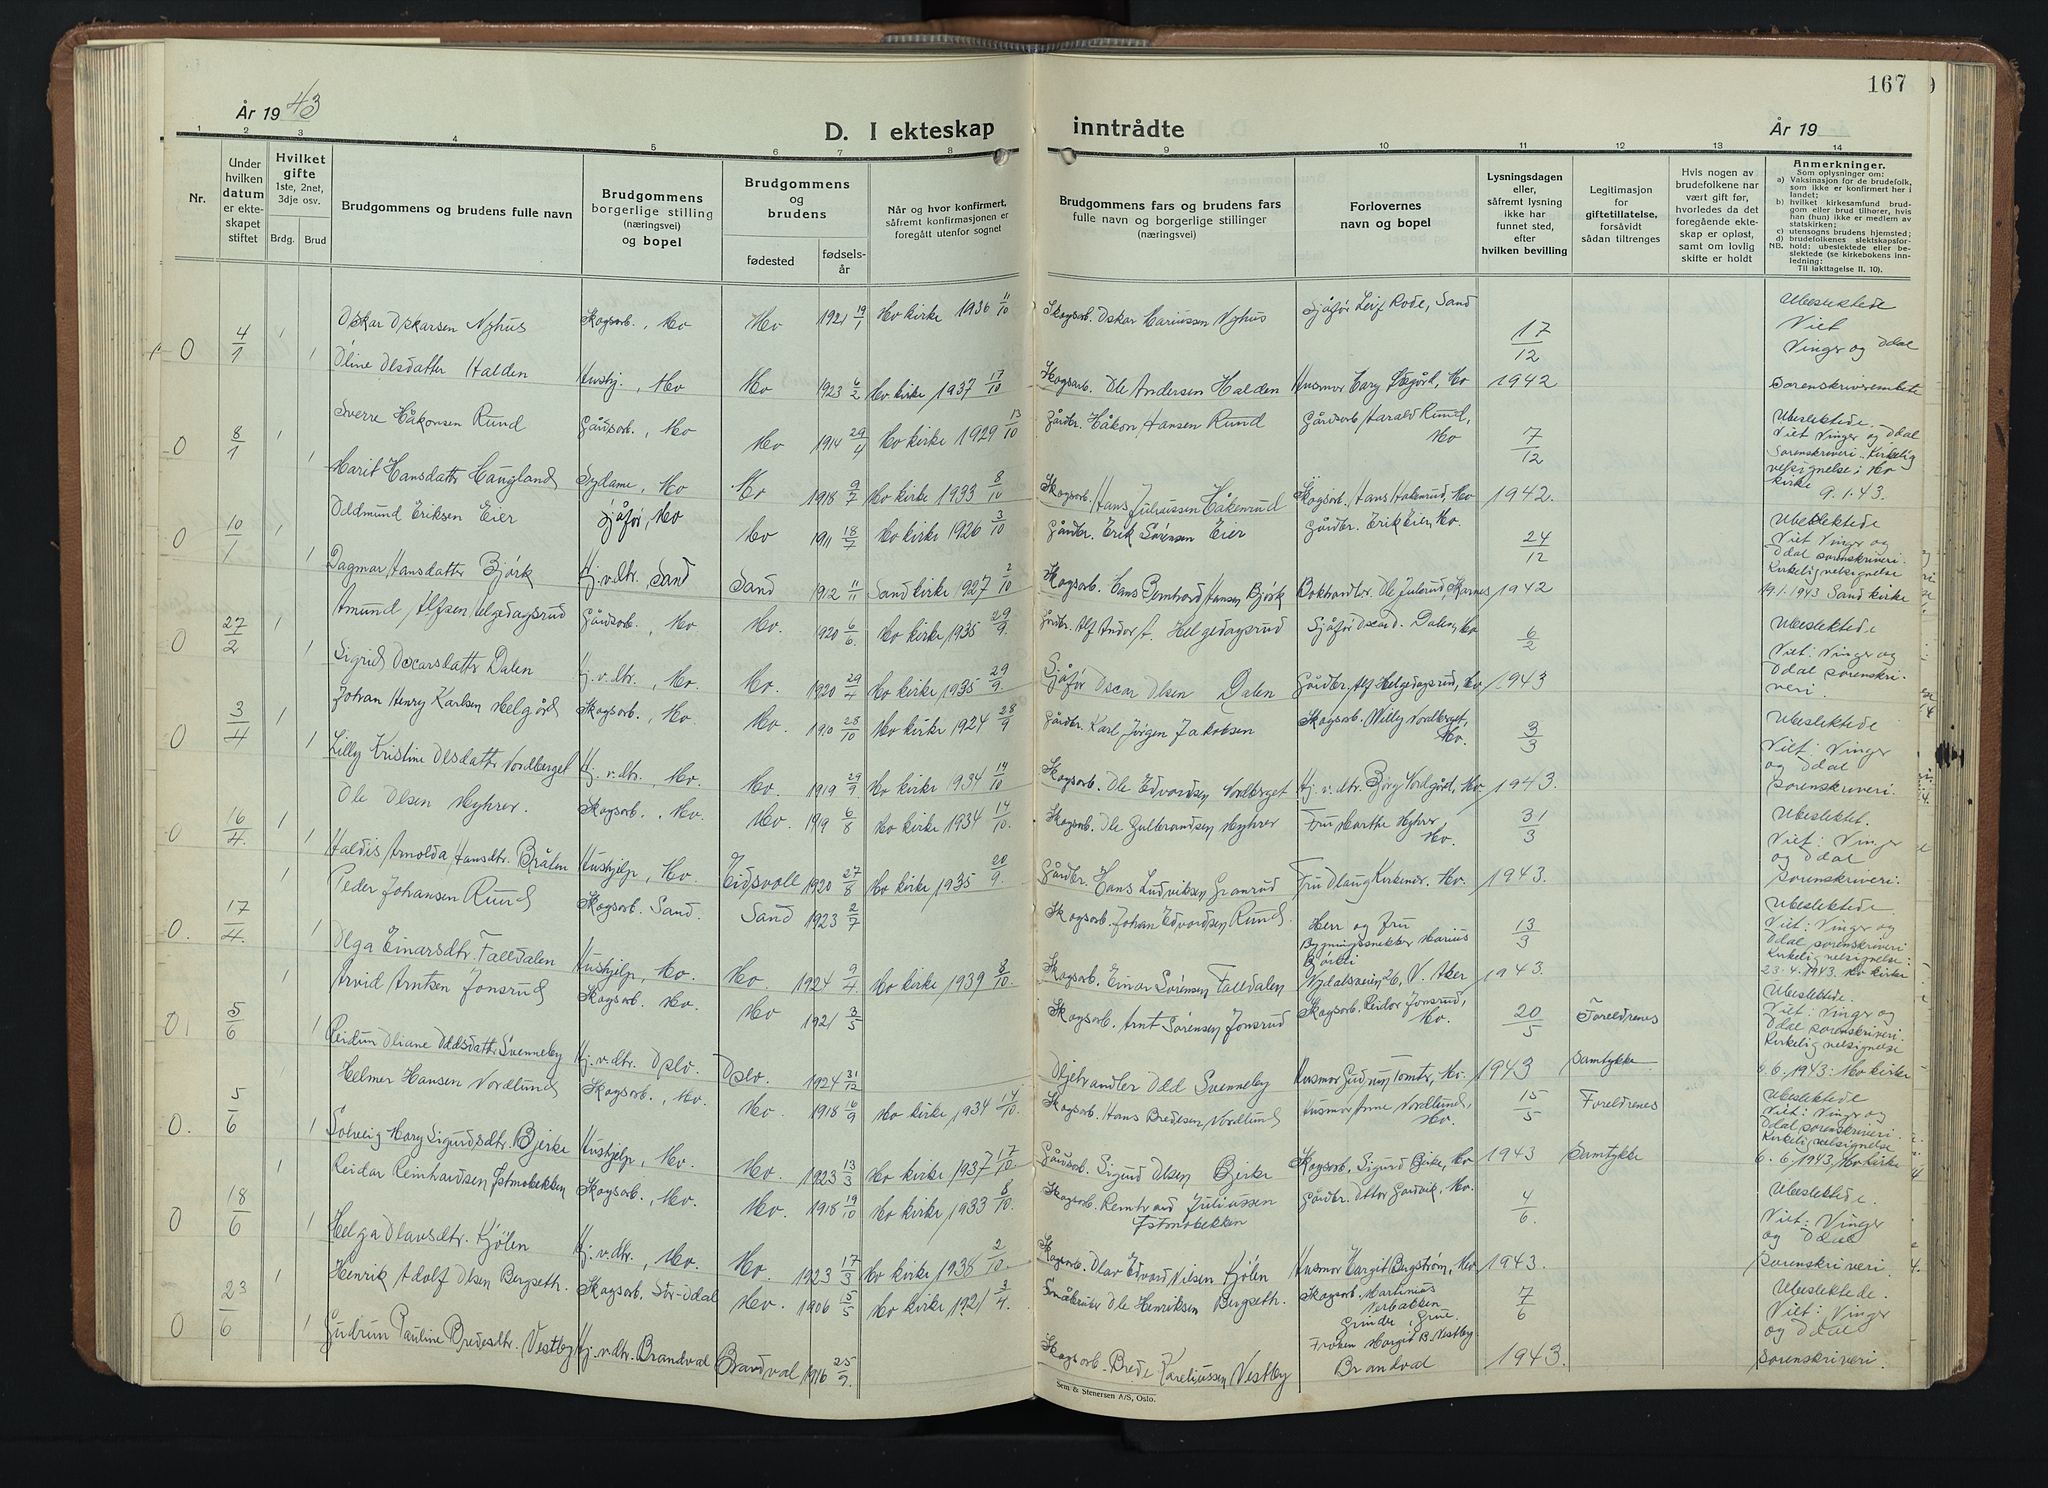 167
År 1943
D. I ekteskap inntrådte
År 19
1 2 3 4 5 6 7 8 9 10 11 12 13 14
Nr.
Under hvilken datum er ekteskapet stiftet
Hvilket gifte
1ste, 2net, 3dje osv.
Brdg. Brud
Brudgommens og brudens fulle navn
Brudgommens borgerlige stilling (næringsvei) og bopel
Brudgommens og brudens
fødested
fødselsår
Når og hvor konfirmert, såfremt konfirmasjonen er foregått utenfor sognet
Brudgommens fars og brudens fars fulle navn og borgerlige stillinger (næringsvei)
Forlovernes navn og bopel
Lysningsdagen eller, såfremt lysning ikke har funnet sted, efter hvilken bevilling
Legitimasjon for giftetillatelse, forsåvidt sådan tiltrenges
Hvis nogen av brudefolkene har vært gift før, hvorledes da det foregående ekteskap er opløst, samt om lovlig skifte er holdt
Anmerkninger.
Som oplysninger om:
a) Vaksinasjon for de brudefolk, som ikke er konfirmert her i landet;
b) hvilket kirkesamfund brudgom eller brud tilhører, hvis han (hun) ikke er medlem av statskirken;
c) utensogns brudens hjemsted;
d) brudefolkenes slektskapsforhold: ubeslektede eller beslektede (se kirkebokens innledning:
NB.
Til iakttagelse II. 10).
0 4/1 1 Oskar Oskarsen Nyhus Skogsarb., Mo Mo 1921 19/1 Mo kirke 1936 11/10 Skogsarb. Oskar Mariussen Nyhus Sjåfør Leif Rode, Sand 17/12 Ubeslektede Viet Vinger og Odal
1 Oline Olsdatter Halden Hushj., Mo Mo 1923 6/2 Mo kirke 1937 17/10 Skogsarb. Ole Andersen Halden 1942 Sorenskriverembete
0 8/1 1 Sverre Håkonsen Rund Gårdsarb., Mo Mo 1914 29/4 Mo kirke 1929 13/10 Gårdbr. Håkon Hansen Rund Gårdsarb. Harald Rund, Mo 7/12 Ubeslektede. Viet Vinger og Odal Sorenskriveri. Kirkelig velsignelse i Mo kirke 9.1.43.
1 Marit Hansdatter Haugland Sydame, Mo Mo 1918 9/7 Mo kirke 1933 8/10 Skogsarb. Hans Juliussen Håkenrud Skogsarb. Hans Håkenrud, Mo 1942.
0 10/1 1 Oddmund Eriksen Eier Sjåfør, Mo Mo 1911 18/7 Mo kirke 1926 3/10 Gårdbr. Erik Sørensen Eier Gårdbr. Erik Eier, Mo. 24/12 Ubeslektede Viet Vinger og Odal sorenskriveri. Kirkelig velsignelse
1 Dagmar Hansdatter Bjørk Hj.v.dtr. Sand Sand 1912 11/11 Sand kirke 1927 2/10 Skogsarb. Hans Bernhard Hansen Bjørk Bokhandler Ole Julsrud, Skarnes 1942 19.1.1943 Sand kirke
0 27/2 1 Amund Alfsen Helgedagsrud Gårdsarb., Mo Mo. 1920 6/6 Mo kirke 1935 29/9. Gårdbr. Alf Andor A. Helgedagsrud Sjåfør Oscar O. Dalen, Mo 6/2 Ubeslektede Viet: Vinger og Odal sorenskriveri.
1 Sigrid Oscarsdatter Dalen Hj.v.dtr., Mo. Mo. 1920 29/4 Mo kirke 1935 29/9. Sjåfør Oscar Olsen Dalen Gårdbr. Alf Helgedagsrud, Mo 1943
0 3/4 1 Johan Henry Karlsen Melgård Skogsarb., Mo Mo. 1910 28/10 Mo kirke 1924 28/9 Gårdbr. Karl Jørgen Jakobsen Skogsarb. Willy Nordberget, Mo. 3/3 Ubeslektede Viet: Vinger og Odal sorenskriveri.
1 Lilly Kristine Olsdatter Nordberget Hj.v.dtr., Mo. Mo. 1919 29/9. Mo kirke 1934 14/10 Skogsarb. Ole Edvardsen Nordberget Hj.v.dtr Bjørg Nordgård, Mo 1943.
0 16/4. 1 Ole Olsen Myhrer Skogsarb., Mo. Mo. 1919 6/8 Mo kirke 1934 14/10. Skogsarb. Ole Gulbrandsen Myhrer Fru Marthe Myhrer, Mo. 31/3 Ubeslektet. Viet: Vinger og Odal sorenskriveri.
1 Haldis Arnolda Hansdtr. Bråten Hushjelp, Mo. Eidsvoll 1920 27/8 Mo kirke 1935 20/9. Gårdbr. Hans Ludviksen Granrud Fru Olaug Kirkenær, Mo. 1943.
0. 17/4. 1 Peder Johansen Rund Skogsarb. Sand. Sand 1923 2/7 Skogsarb. Johan Edvardsen Rund Herr og fru Bygningssnekker Marius 13/3 Ubeslektede. Viet: Vinger og Odal sorenskriveri Kirkelig velsignelse: 23.4.1943. Mo kirke
1 Olga Einarsdtr. Falldalen Hushjelp, Mo. Mo. 1924 9/4 Mo kirke 1939 8/10. Skogsarb. Einar Sørensen Falldalen Nydalsveien 26, V. Aker 1943.
0 5/6 1 Arvid Arntsen Jonsrud Skogsarb. Mo. Mo 1921 3/5 Skogsarb. Arnt Sørensen Jonsrud Skogsarb. Reidar Jonsrud, Mo. 20/5 Foreldrenes Ubeslektede. Viet: Vinger og Odal sorenskriveri. Kirkelig velsignelse
1 Reidun Oliane Oddsdatter Svenneby Hj.v.dtr. Oslo. Oslo. 1924 31/12 Oljehandler Odd Svenneby Husmor Gudrun Tomter, Mo. 1943 Samtykke 6.6.1943: Mo kirke
0. 5/6 Helmer Hansen Nordlund Skogsarb., Mo. Mo. 1918 16/9 Mo kirke 1934 14/10. Skogsarb. Hans Bredesen Nordlund Husmor Anne Nordlund, Mo. 15/5 Foreldrenes Ubeslektede Viet: Vinger og Odal sorenskriveri. Kirkelig velsignelse
1 Solveig Mary Sigurdsdtr. Bjerke Hushjelp, Mo. Mo. 1923 13/3 Mo kirke 1937 17/10 Gårdsarb. Sigurd Olsen Bjerke Skogsarb. Sigurd Bjerke, Mo 1943 Samtykke 6.6.1943, Mo kirke
0 18/6 1 Reidar Reinhardsen Østmobekken Skogsarb., Mo. Mo. 1918 19/10 Mo kirke 1933 8/10. Skogsarb. Reinhard Juliussen Østmobekken 4/6. Ubeslektede. Viet: Vinger og Odal sorenskriveri.
1 Helga Olavsdtr. Kjølen Hj.v.dtr., Mo. Mo. 1923 17/3 Mo kirke 1938 2/10. Skogsarb. Olav Edvard Nilsen Kjølen Husmor Margit Bergstrøm, Mo 1943.
0 23/6 1 Henrik Adolf Olsen Bergseth. Skogsarb. Str-Odal Mo. 1906 15/5 Mo kirke 1921 3/4. Småbruker Ole Henriksen Bergseth. Skogsarb. Martinius Verbakken Grinder, Grue. 7/6 Ubeslektede. Viet: Vinger og Odal sorenskriveri.
1 Gudrun Pauline Bredesdtr. Vestby Hj.v.dtr. Brandval Brandval 1916 25/9. Skogsarb. Brede Kareliussen Vestby Frøken Margit B. Vestby Brandval 1943.
Sem & Stenersen A/S, Oslo.